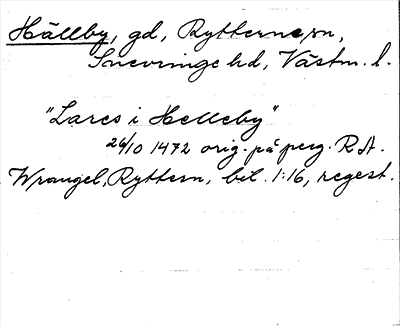 Hällby, gd, Rytterne sn,
Snevringe hd, Västm. l.
"Lares i Helleby"
26/10 1472 orig. på perg. RA.
Wrangel, Ryttern, bil. 1:16, regest.